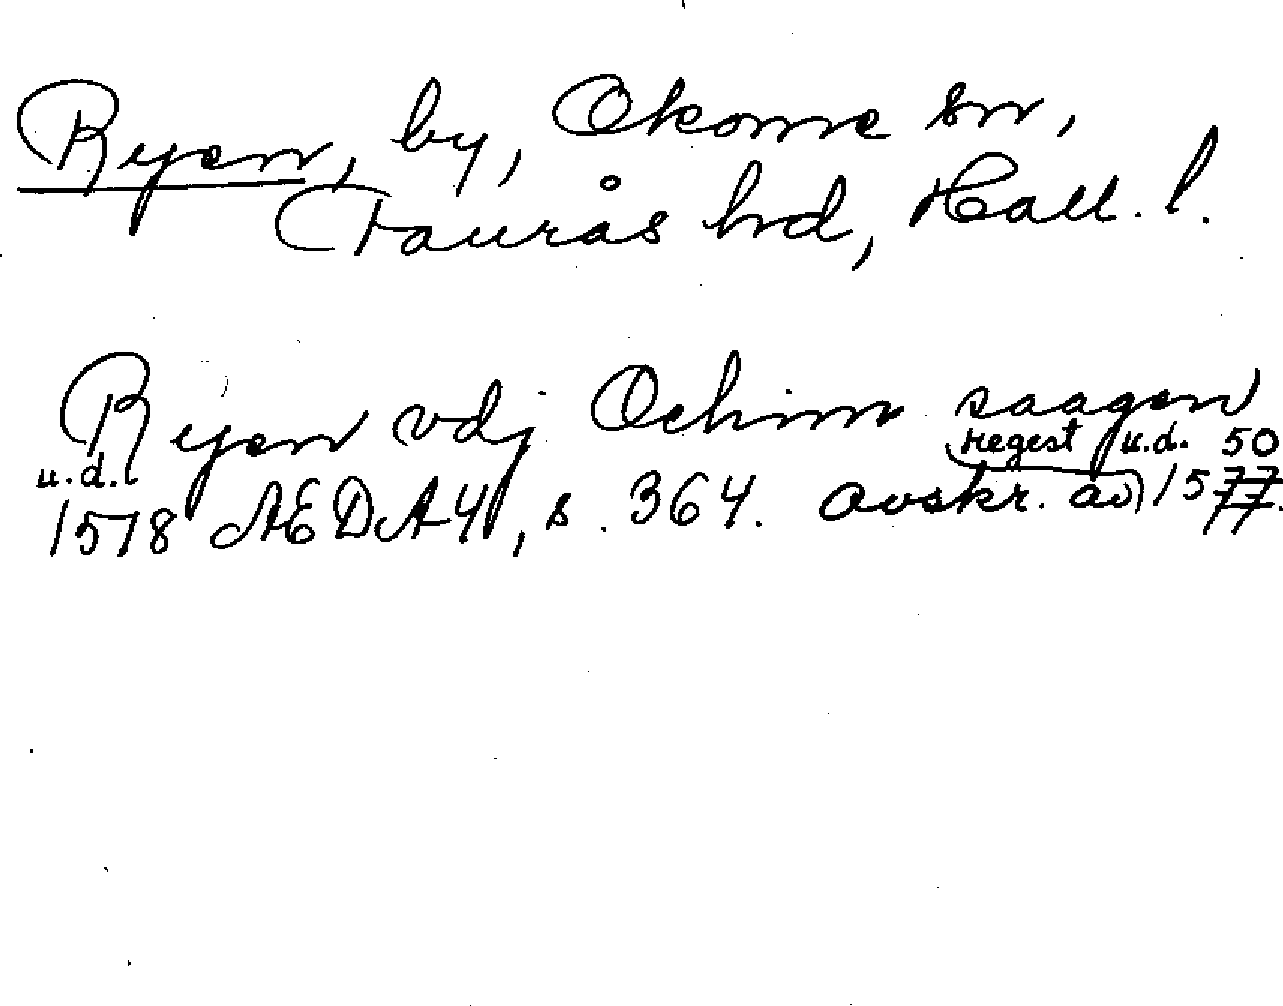 Ryen, by, Okome sn,
Faurås hd, Hall. l.
Ryen vdj Ochim saagen
u.d. regest u.d. 50
1578 AEDA 4, s. 364. avskr. av 1577.